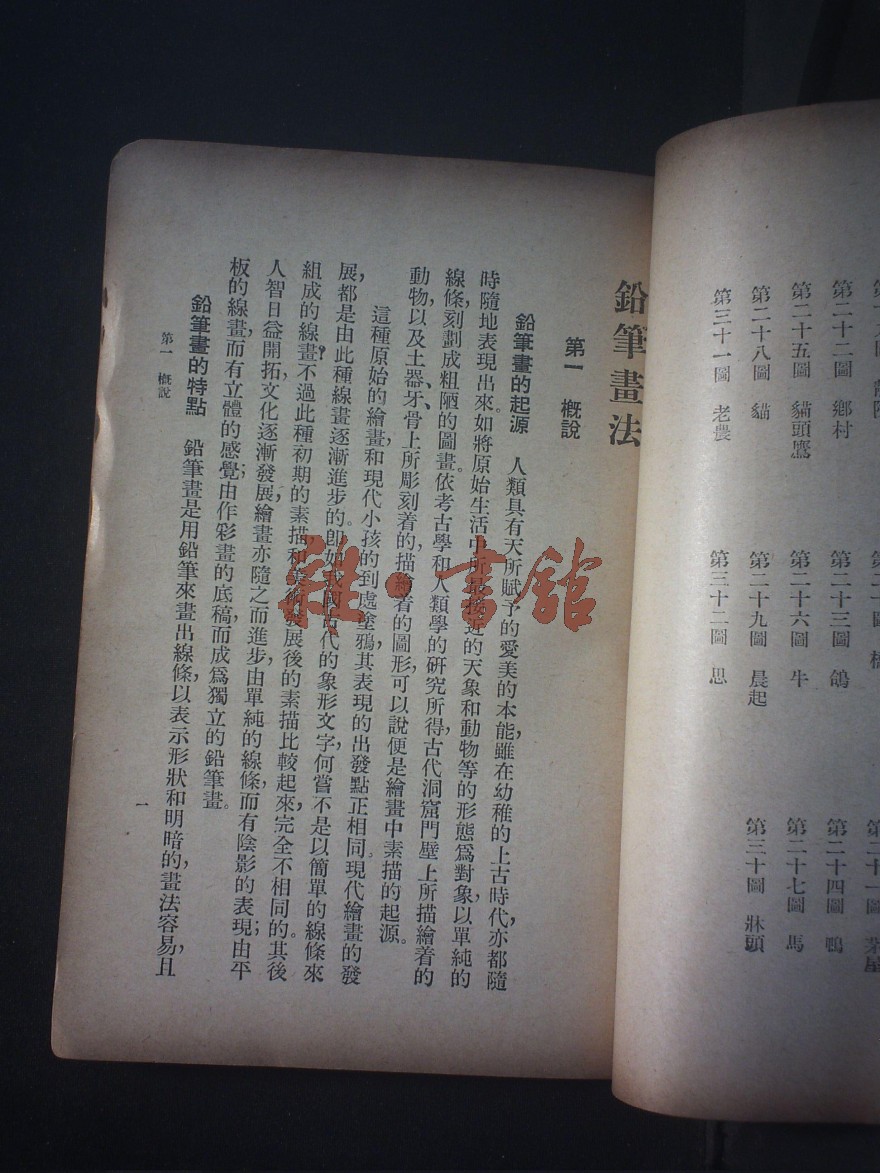 第二十二圖　鄉村
第二十三圖　鴿
第二十四圖　鴨
第二十五圖　貓頭鷹
第二十六圖　牛
第二十七圖　馬
第二十八圖　貓
第二十九圖　晨起
第三十圖　牀頭
第三十一圖　老農
第三十二圖　思
鉛筆畫法
第一　概說
鉛筆畫的起源　人類具有天所賦予的愛美的本能，雖在幼稚的上古時代，亦都隨
時隨地表現出來。如將原始生活中所最接近的天象和動物等的形態爲對象，以單純的
線條，刻劃成粗陋的圖畫。依考古學和人類學的研究所得，古代洞窟門壁上所描繪着的
動物，以及土器、牙、骨上所彫刻着的描繪着的圖形，可以說便是繪畫中素描的起源。
這種原始的繪畫，和現代小孩的到處塗鴉，其表現的出發點正相同。現代繪畫的發
展，都是由此種線畫逐漸進步的。卽如我國古代的象形文字，何嘗不是以簡單的線條來
組成的線畫？不過此種初期的素描，和美術發展後的素描比較起來，完全不相同的。其後
人智日益開拓，文化逐漸發展，繪畫亦隨之而進步，由單純的線條，而有陰影的表現；由平
板的線畫，而有立體的感覺；由作彩畫的底稿，而成爲獨立的鉛筆畫。
鉛筆畫的特點　鉛筆畫是用鉛筆來畫出線條，以表示形狀和明暗的，畫法容易，且
第一　概說
一
雜·書館